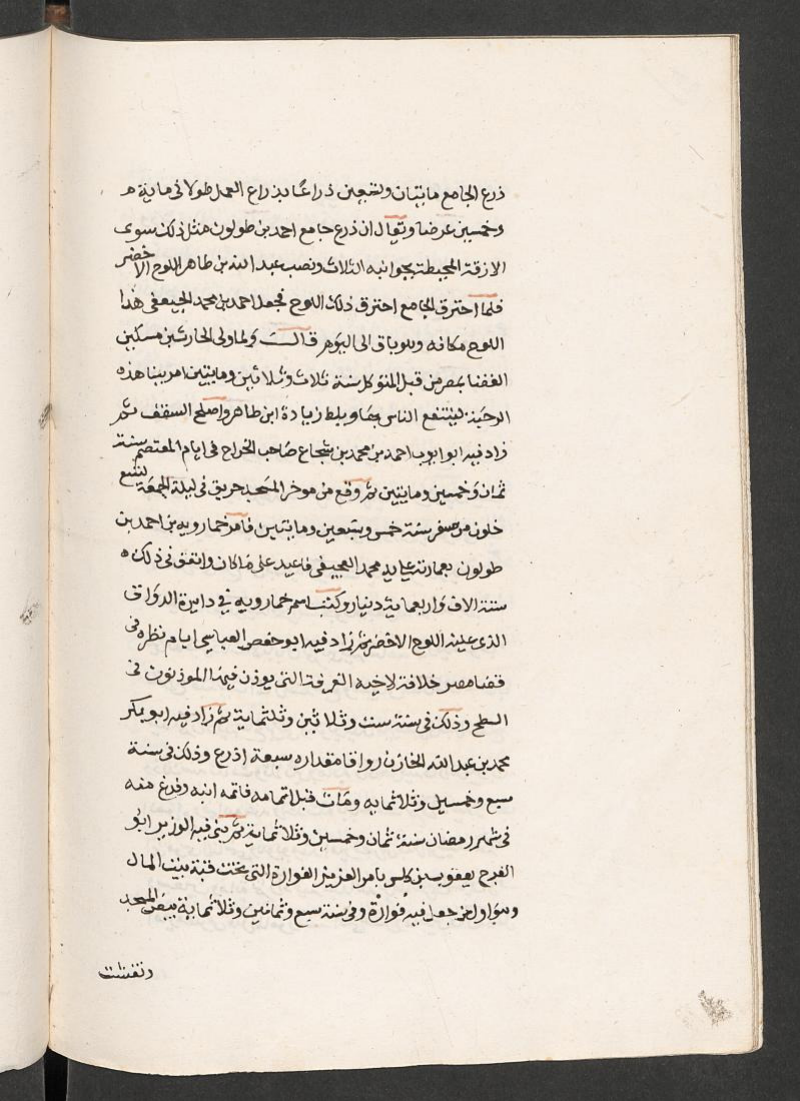 ذرع الجامع مايتان وتسعين ذراعا بذراع العمل طولا فى ماية م
وخمسين عرضا ويقال ان ذرع جامع احمد بن طولون مثل ذلك سوى
الازقة المحيطة بجوانبه الثلاث ونصب عبد الله بن طاهر اللوح الاخضر
فلما احترق الجامع احترق ذلك اللوح فجعل احمد بن محمد العجيفى هذا
اللوح مكانه وهو باق الى اليوم قالــ ولما ولى الحارث بن مسكين
القضا بمصر من قبل المتوكل سنة ثلاث وثلاثين ومايتين امر ببنا هذه
الرحبة لينتفع الناس بها وبلط زيادة ابن طاهر واصلح السقف ثم
زاد فيه ابو ايوب احمد بن محمد بن شجاع صاحب الخراج فى ايام المعتصم سنة
ثمان وخمسين ومايتين ثم وقع من موخر المسجد حريق فى ليلة الجمعة لتسع
خلون من صفر سنة خمس وسبعين ومايتين فامر خمارويه بن احمد بن
طولون بعمارته على يد محمد العجيفى فاعيد على ما كان وانفق فى ذلك ه
ستة الاف واربعماية دينار وكتب اسم خمارويه فى دايرة الرواق
الذى عليه اللوح الاخضر ثم زاد فيه ابو حفص العباسى ايام نظره فى
قضا مصر خلافة لاخيه الغرفة التى يوذن فيها الموذنون فى
السطح وذلك فى سنة ست وثلاثين وثلثماية ثم زاد فيه ابو بكر
محمد بن عبد الله الخازن رواقا مقداره سبعة اذرع وذلك فى سنة
سبع وخمسين وثلاثمايه ومات قبل اتمامه فاتمه ابنه وفرغ منه
فى شهر رمضان سنة ثمان وخمسين وثلاثماية ثم بنى فيه الوزير ابو
الفرج يعقوب بن كلس بامر العزيز الفوارة التى تحت قبة بيت المال
وهو اول من جعل فيه فوارة وفى سنة سبع وثمانين وثلاثماية بيض المسجد
ونقشت